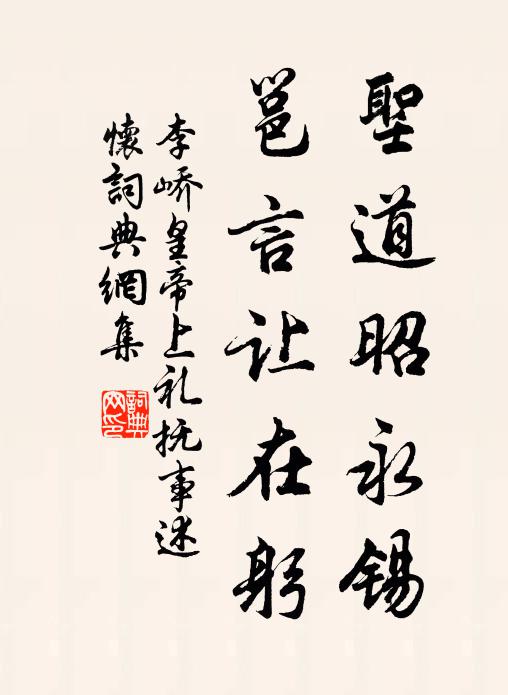 聖道昭永锡
邕言让在躬
李嶠皇帝上礼抚事述
懷詞典網集
詞典
网印